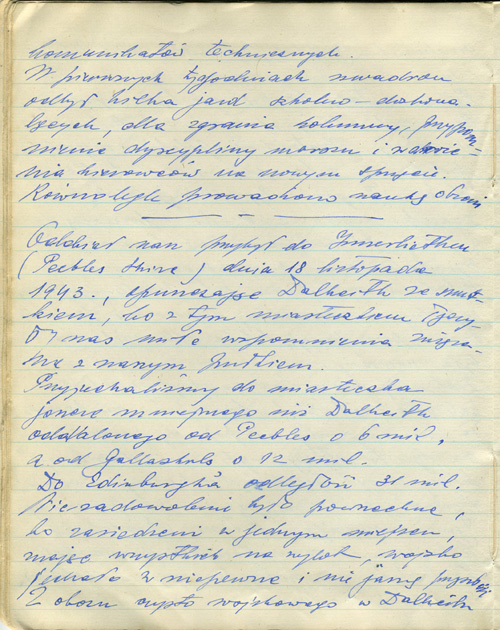 komunikatów technicznych.
W pierwszych tygodniach szwadron
odbył kilka jazd szkolno-doskona-
lących, dla zgrania kolumny, przypom
nienia dyscypliny marszu i
nia kierowców na nowym sprzęcie.
Równolegle prowadzono naukę obrony
Oddział nasz przybył do Innerleithen
(Peebles Shire) dnia 18 listopada
1943., opuszczając Dalkeith ze smut-
kiem, bo z tym miasteczkiem łączy-
ły nas miłe wspomnienia
z naszym
Przyjechaliśmy do miasteczka
jeszcze mniejszego niż Dalkeith
oddalonego od Peebles o 6 mil,
a od Gallashiels o 12 mil.
Do Edinburgha odległość 31 mil.
Niezadowolenie było powszechne,
bo zasiedzeni w jednym miejscu,
mając wszystkich na wylot, wojsko
w niepewne i nie jasne
Z obozu czysto wojskowego w Dalkeith